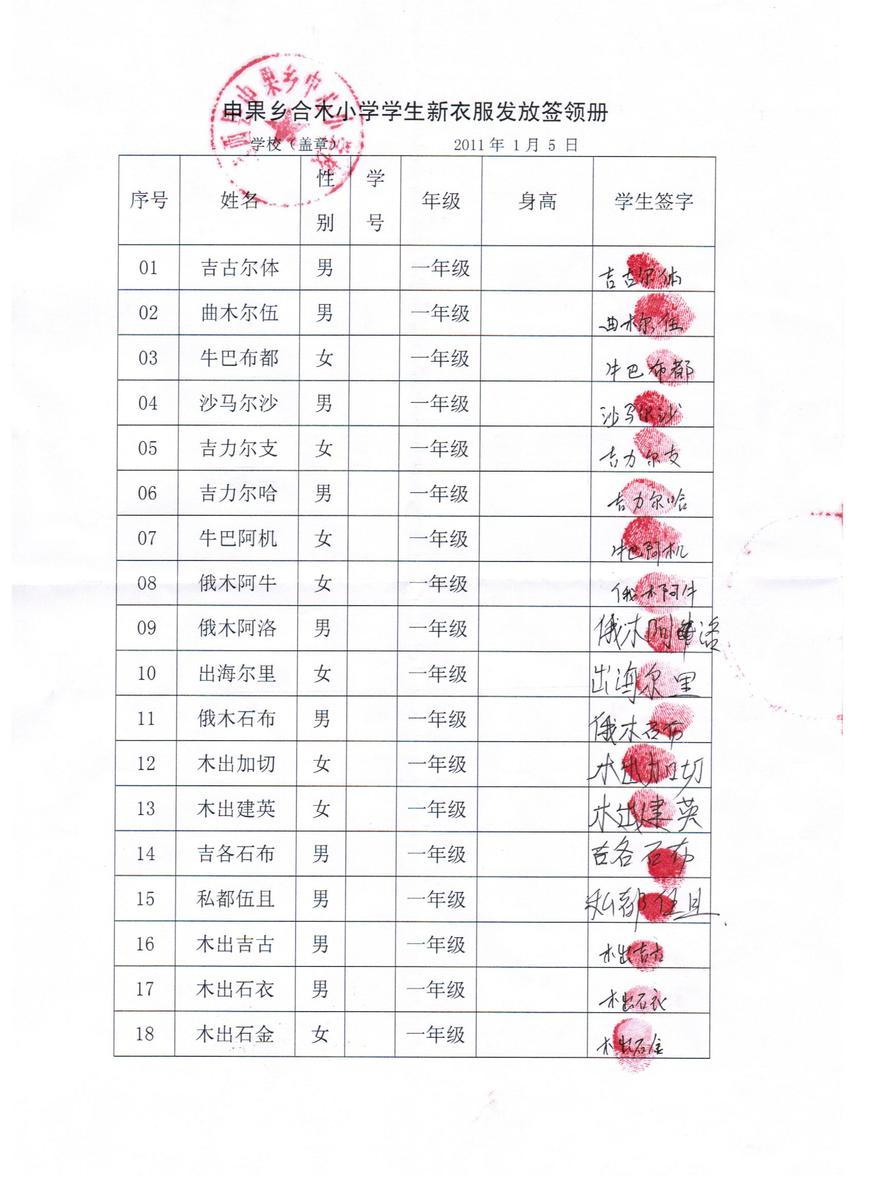 申果乡合木小学学生新衣服发放签领册
学校（盖章） 2011年 1月 5日
序号 姓名 性别 学号 年级 身高 学生签字
01 吉古尔体 男 一年级 吉古尔体
02 曲木尔伍 男 一年级 曲木尔伍
03 牛巴布都 女 一年级 牛巴布都
04 沙马尔沙 男 一年级 沙马尔沙
05 吉力尔支 女 一年级 吉力尔支
06 吉力尔哈 男 一年级 吉力尔哈
07 牛巴阿机 女 一年级 牛巴阿机
08 俄木阿牛 女 一年级 俄木阿牛
09 俄木阿洛 男 一年级 俄木阿洛
10 出海尔里 女 一年级 出海尔里
11 俄木石布 男 一年级 俄木石布
12 木出加切 女 一年级 木出加切
13 木出建英 女 一年级 木出建英
14 吉各石布 男 一年级 吉各石布
15 私都伍且 男 一年级 私都伍且
16 木出吉古 男 一年级 木出吉古
17 木出石衣 男 一年级 木出石衣
18 木出石金 女 一年级 木出石金